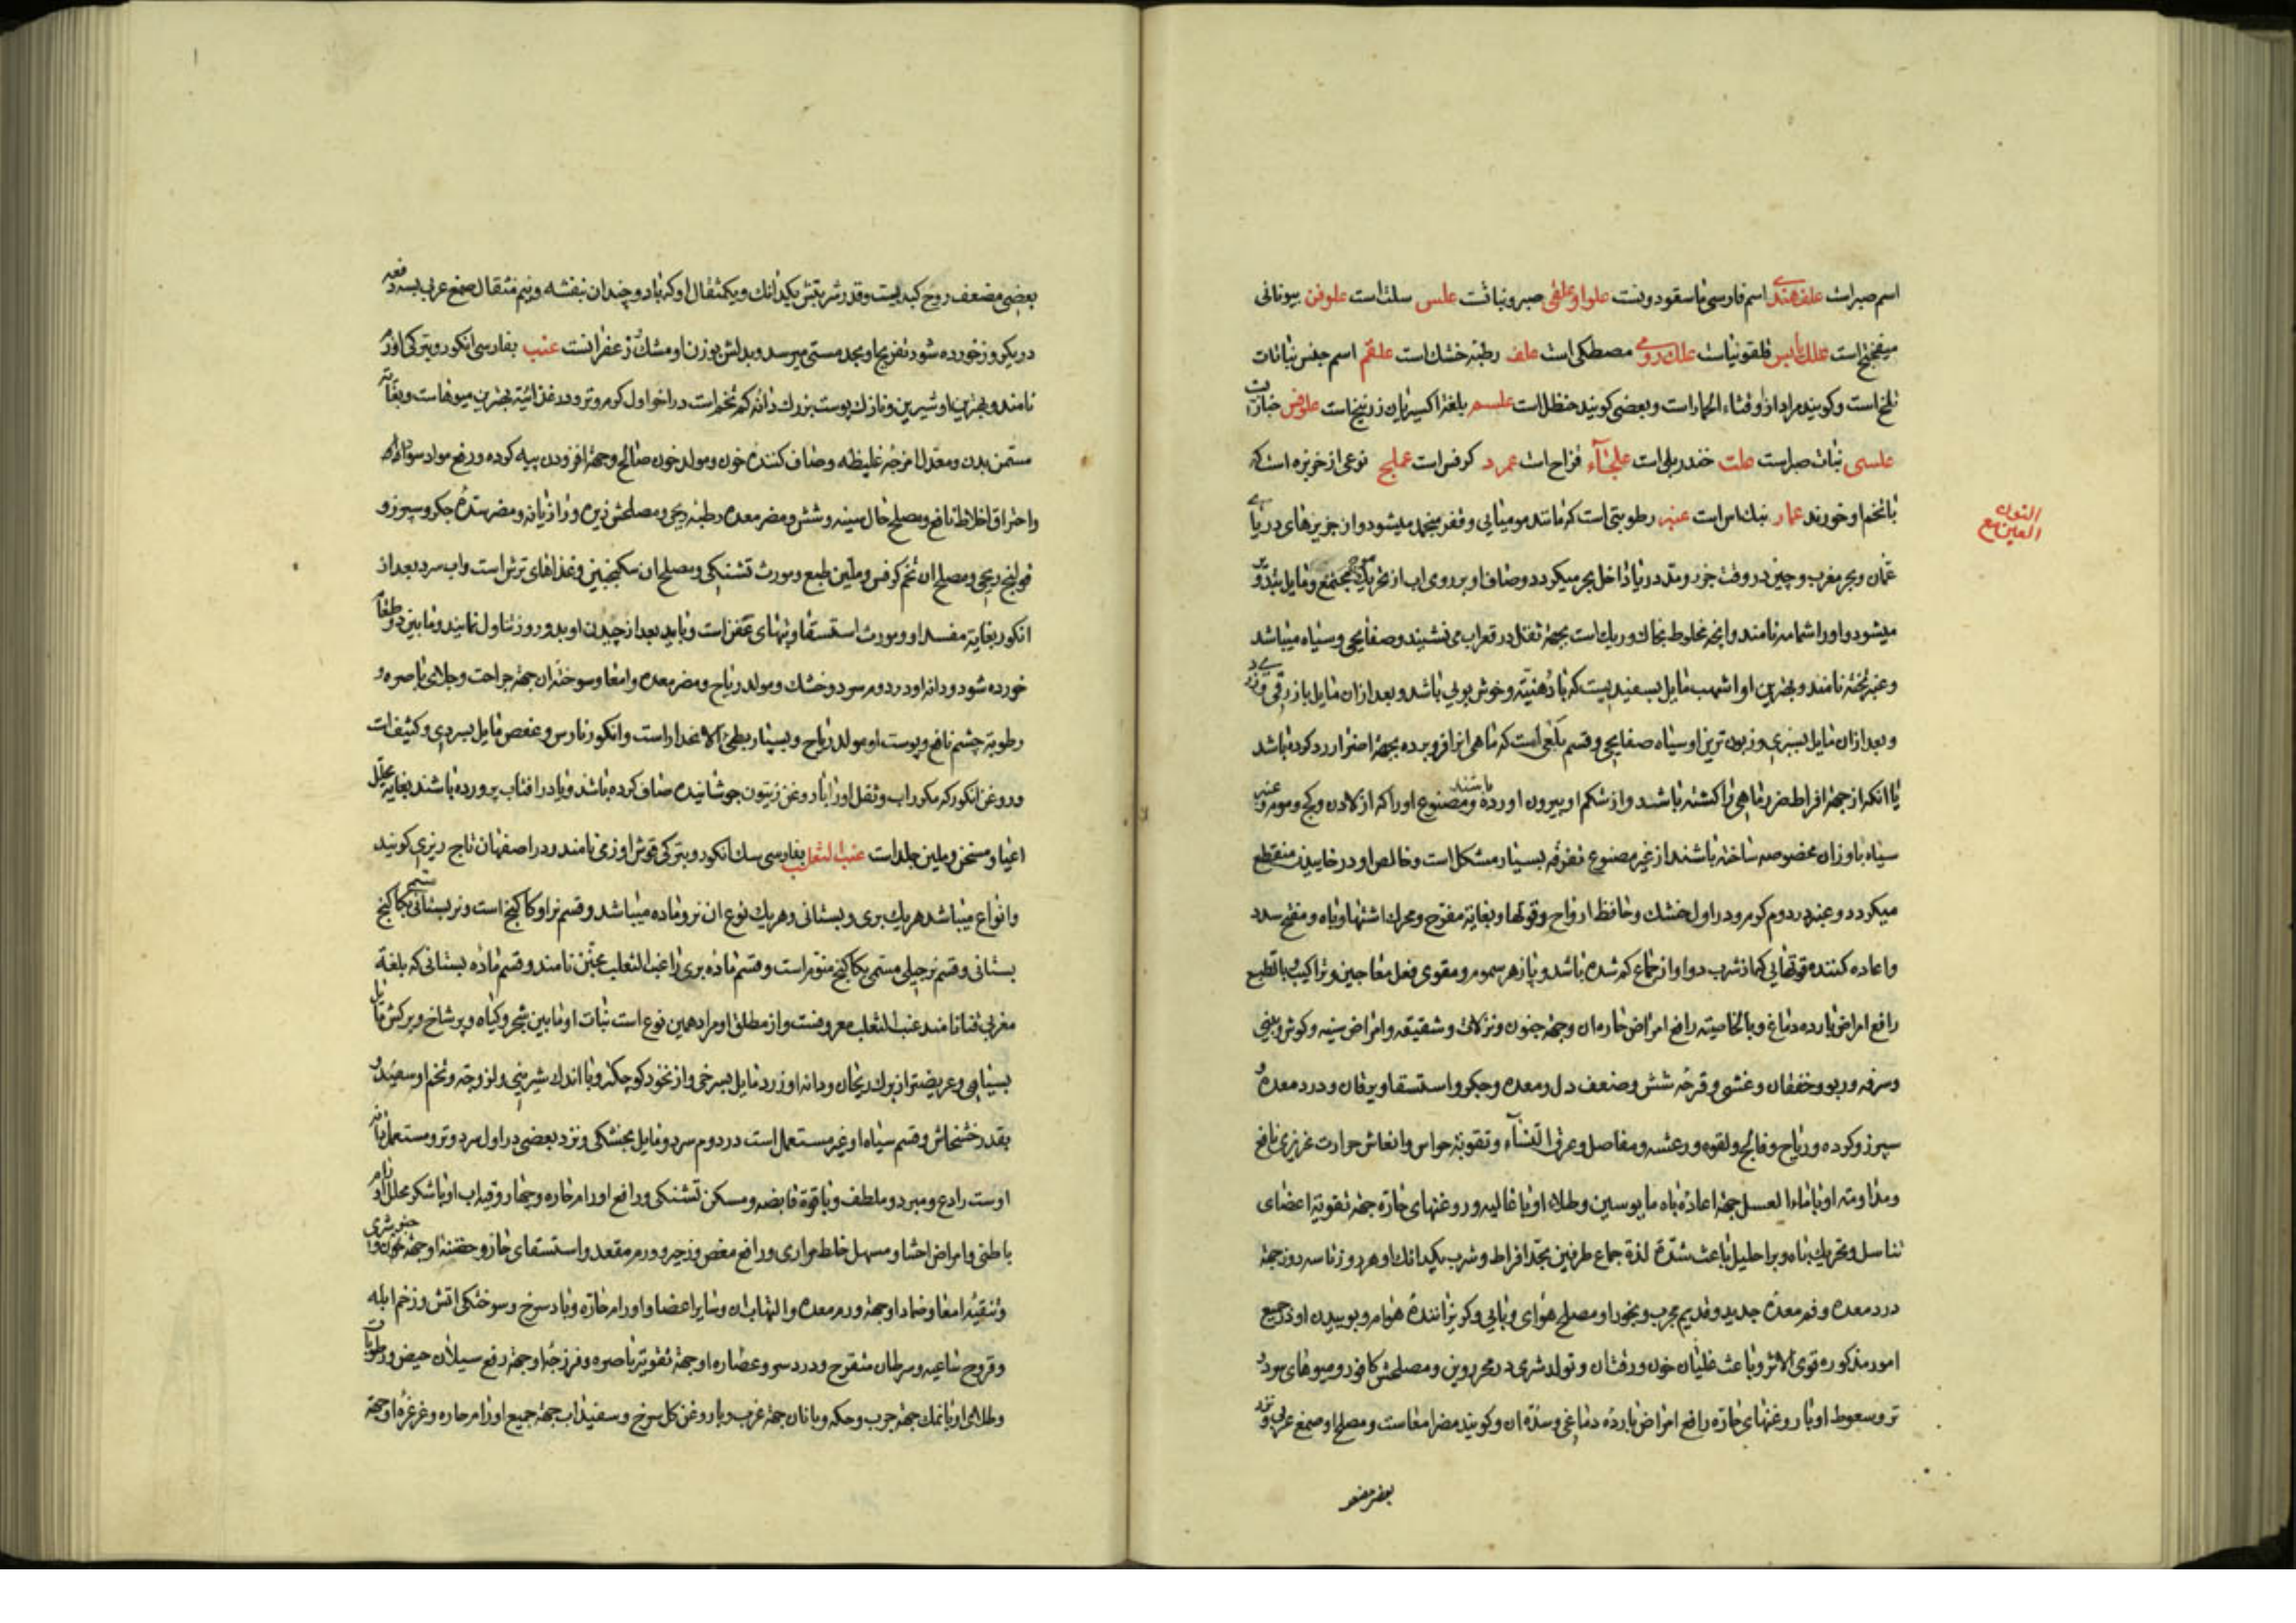 اسم صبر است علف هندی اسم فارسی ناسقودونست علوا و علقی صبر و نباتست علس سلت است علوفن بیونانی
میفختج است علك یابس قلقونیاست علك رومی مصطکی است علف رطبه خشك است علقم اسم جنس نباتات
تلخ است و کویند مراد ازو قثاء الحمار است و بعضی کویند حنظل است علسم بلغة اکسیریان زرنیخ است علوفس خبازیست
علسی نبات صبر است علت خندریلی است علجاء فزاح است عمرد کرفس است عملج نوعی از خربزه است که
با تخم او خورند عمار نبك اس است عنبر رطوبتی است که مانند مومیائی و قفر منجمد میشود و از جزیرهای دریای
عمان و بحر مغرب و چین در وقت جزر و مد دریا داخل بحر میکردد و صاف او بر روی اب از تحریك موج مجتمع و مایل بتدویر
میشود و او را شمامه نامند و انچه مخلوط بخاك و ریك است بجهة ثقل در قعر اب می نشیند و صفایحی و سیاه میباشد
و عنبر تخته نامند و بهترین او اشهب مایل بسفیدیست که با دهنیته و خوش بویی باشد و بعد ازان مایل بازرقی و زردی
و بعد ازان مایل بسبزی و زبون ترین او سیاه صفایحی و قسم بلعی است که ماهی انرا فرو برده بجهة اضرار رد کرده باشد
یا انکه از جهة افراط ضرر ماهی را کشته باشند و از شکم او بیرون اورده باشند و مصنوع او را که از لادن و کچ و موم و عنبر
سیاه باوزان مخصوصه ساخته باشند از غیر مصنوع تفرقه بسیار مشکل است و خالص او در خاییدن منقطع
میکردد و عنبر در دوم کرم و در اول خشك و حافظ ارواح و قوتها و بغایة مفرح و محرك اشتها و باه و مفتح سدد
و اعاده کننده قوتهایی که از شرب دوا و از جماع کم شده باشد و پازهر سموم و مقوی فعل معاجین و تراکیب و بالطبع
رافع امراض بارده دماغ و بالخاصیته رافع امراض حار مان و جهة جنون و نزلات و شقیقه و امراض سینه و کوش و بینی
و سرفه و ربو و خفقان و غشی و قرحه شش و ضعف دل و معده و جکر و استسقا و یرقان و درد معده و
سپرز و کرده و ریاح و فالج و لقوه و رعشه و مفاصل و عرق النساء و تقویة حواس و انعاش حرارت غریزی نافع
و مداومته او با ماء العسل جهة اعاده باه مایوسین و طلاء او با غالیه و روغنهای حاره جهة تقویة اعضای
تناسل و تحریك باه و بر احلیل باعث شدة لذة جماع طرفین بحد افراط و شرب یکدانك او هر روز تا سه روز جهة
درد معده و فم معده جدید و قدیم مجرب و بخور او مصلح هوای وبایی و کریزانندۀ هوام و بوییدن او در جمیع
امور مذکوره قوی الاثر و باعث غلیان خون و رقتان و تولد شری در محرورین و مصلحش کافور و میوهای سرد و
تر و سعوط او با روغنهای حاره رافع امراض بارده دماغی و سده ان و کویند مضر امعاست و مصلح او صمغ عربی و نزد
بعضی مضعف
النون
العین مع
بعضی مضعف روح کبدیست و قدر شربتش یکدانك و یکمثقال او که با دو چندان بنفشه و نیم مثقال صمغ عربی بسه دفعه
در یکروز خورده شود تفریح او بحد مستی میرسد و بدلش بوزن او مشك و زعفرانست عنب بفارسی انکور و بترکی اوزم
نامند و بهترین او شیرین و نازك پوست بزرك دانه کم تخم است در اخر اول کرم و تر و در غذائیة بهترین میوهاست و بغایته
مسمن بدن و معدل امزجه غلیظه و صاف کننده خون و مولد خون صالح و جهة افزودن پیه کرده و رفع مواد سوداوی
و احتراق اخلاط نافع و مصلح حال سینه و شش و مضر معده رطبه ریحی و مصلحش زیره و رازیانه و مضر سده جکر و سپرز و
قولنج ریحی و مصلح ان تخم کرفس و ملین طبع و مورث تشنکی و مصلح ان سکنجبین و غذاهای ترش است و اب سرد بعد از
انکور بغایة مفسد او و مورث استسقا و تبهای عفن است و باید بعد از چیدن او بدو روز تناول نمایند و ما بین دو طعام
خورده شود و دانه او در دوم سرد و خشك و مولد ریاح و مضر معده و امعا و سوخته ان جهة جراحت و جلای باصره و
رطوبة چشم نافع و پوست او مولد ریاح و بسیار بطئ الانحدار است و انکور نارس و عفص مایل بسردی و کثیف است
و روغن انکور که مکرر اب و ثفل او را با روغن زیتون جوشانیده صاف کرده باشند و یا در افتاب پرورده باشند بغایة محلل
اعیا و مسخن و ملین جلد است عنب الثعلب بفارسی سك انکور و بترکی قوش اوزمی نامند و در اصفهان تاج ریزی کویند
و انواع میباشد هر یك بری و بستانی و هر یك نوع ان نر و ماده میباشد و قسم نر او کاکنج است و نر بستانی مسمی بکاکنج
بستانی و قسم نر جبلی مسمی بکاکنج منوم است و قسم ماده بری را عنب الثعلب مجنن نامند و قسم ماده بستانی که بلغة
مغربی فنا نامند عنب الثعلب معروفست و از مطلق او مراد همین نوع است نبات او ما بین شجر و کیاه و پر شاخ و برکش مایل
بسیاهی و عریضتر از برك ریحان و دانه او زرد مایل بسرخی و از نخود کوچکتر و با اندك شیرینی و لزوجته و تخم او سفید و
بقدر خشخاش و قسم سیاه او غیر مستعمل است در دوم سرد و مایل بخشکی و نزد بعضی در اول سرد و تر و مستعمل تازه
اوست رادع و مبرد و ملطف و با قوة قابضه و مسکن تشنکی و رافع اورام حاره و بخار رقیه اب او با شکر محلل اورام
باطنی و امراض احشا و مسهل خلط مراری و رافع مغص و زحیر و ورم مقعد و استسقای حار و حقنه او جهة جنون و شری
و تنقیه امعا و ضماد او جهة ورم معده و التهاب ان و سایر اعضا و اورام حاره و باد سرخ و سوختکی اتش و زخم ابله
و قروح ساعیه و سرطان متقرح و درد سر و عصاره او جهة تقویة باصره و فرزجۀ او جهة رفع سیلان حیض و رطوبات
و طلای او با نمك جهة جرب و حکه و با نان جهة غرب و با روغن کل سرخ و سفیداب جهة جمیع اورام حاره و غرغرۀ او جهة